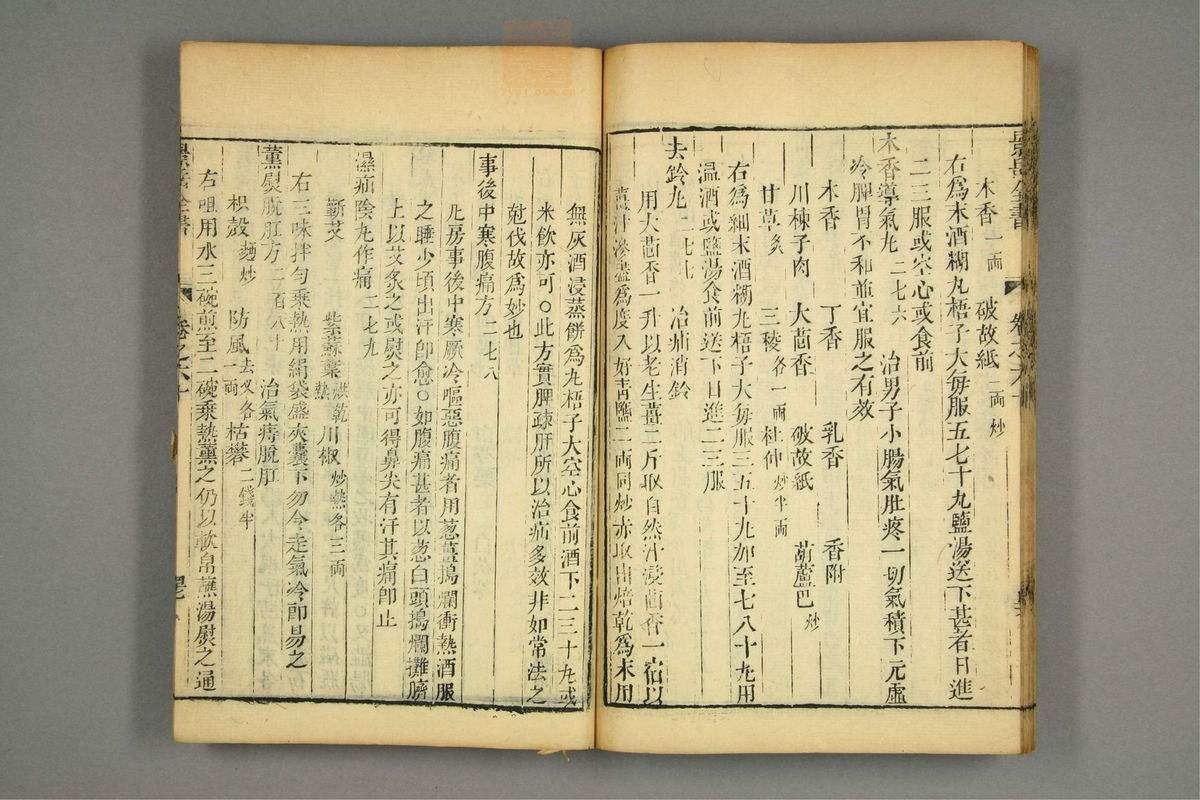 木香一兩 破故紙二兩炒
右爲末酒糊丸梧子大每服五七十丸鹽湯送下甚者日進
二三服或空心或食前
木香導氣丸二七六 治男子小腸氣肚疼一切氣積下元虛
冷脾胃不和並宜服之有效
木香 丁香 乳香 香附
川楝子肉 大茴香 破故紙 葫蘆巴炒
甘草炙 三稜各一兩 杜仲炒半兩
右爲細末酒糊丸梧子大每服三五十丸加至七八十丸用
溫酒或鹽湯食前送下日進二三服
去鈴丸二七七 治疝消鈴
用大茴香一升以老生薑二斤取自然汁浸茴香一宿以
薑汁滲盡爲度入好青鹽二兩同炒赤取出焙乾爲末用
無灰酒浸蒸餅爲丸梧子大空心食前酒下二三十丸或
米飲亦可○此方實脾疎肝所以治疝多效非如常法之
尅伐故爲妙也
事後中寒腹痛方二七八
凡房事後中寒厥冷嘔惡腹痛者用葱薑搗爛衝熱酒服
之睡少頃出汗卽愈○如腹痛甚者以葱白頭搗爛攤臍
上以艾炙之或熨之亦可得鼻尖有汗其痛卽止
濕疝陰丸作痛二七九
蘄艾 紫蘇葉烘乾熱 川椒炒熱各三兩
右三味拌勻乘熱用絹袋盛夾囊下勿令走氣冷卽易之
薰熨脫肛方二百八十 治氣痔脫肛
枳殼麵炒 防風去叉各一兩 枯礬二錢半
右咀用水三碗煎至二碗乘熱薰之仍以軟帛蘸湯熨之通
景岳全書
卷之六十
景岳全書
卷之六十